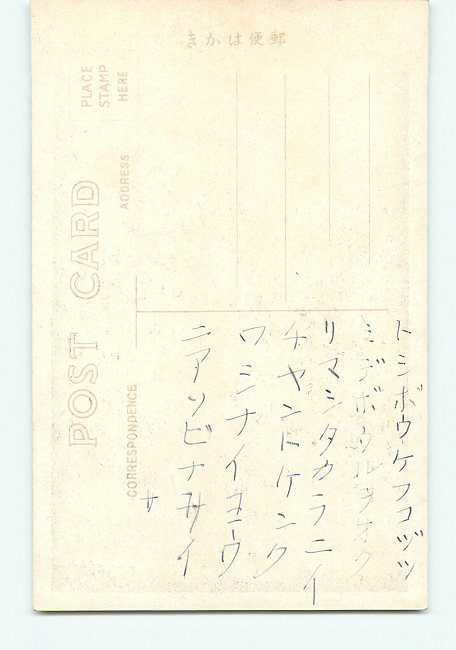 郵便はかき
PLACE
STAMP
HERE
ADDRESS
POST CARD
CORRESPONDENCE
トシボウケフコヅツ
ミデボウルヲオク
リマシタカラニイ
チヤントケンク
ワシナイヨウ
ニアソビナサイ
サ